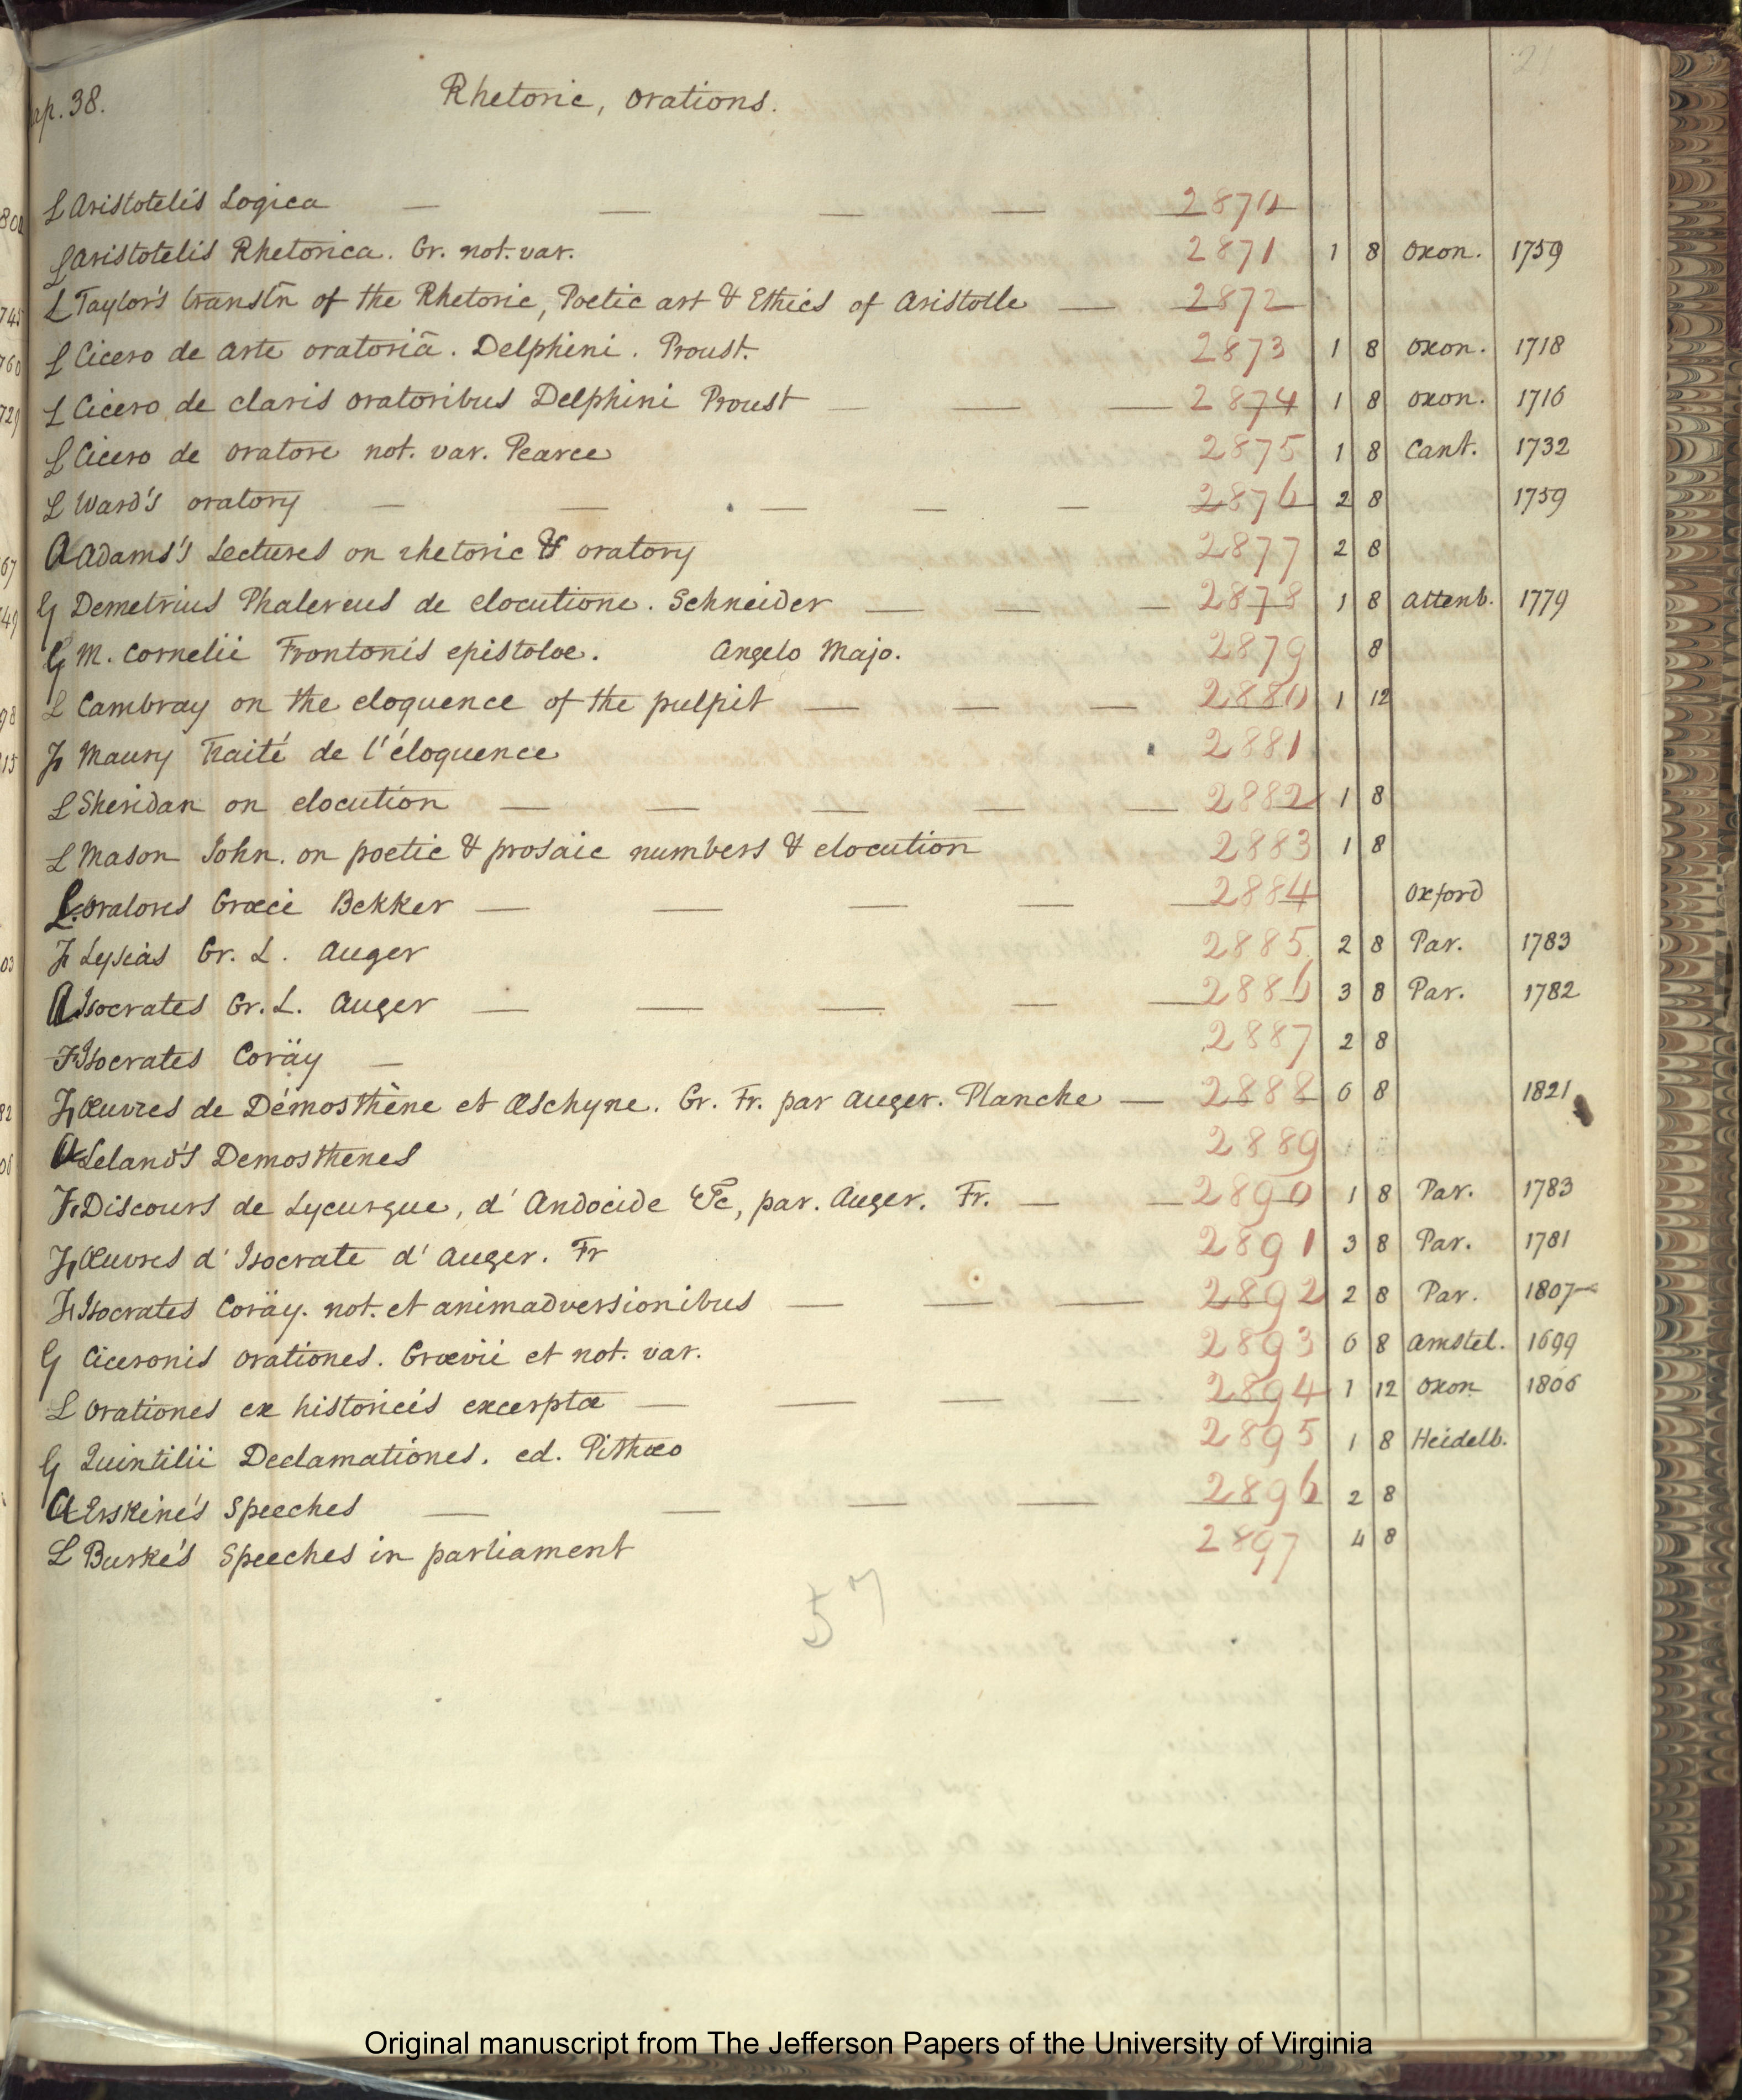 ap. 38. Rhetoric, orations.
L Aristotelis Logica — — — — 2870
L Aristotelis Rhetorica. Gr. not. var. 2871 1 8 Oxon. 1759
L Taylor's transln of the Rhetoric, Poetic art & Ethics of Aristotle — 2872
L Cicero de arte oratoriâ. Delphini. Proust. 2873 1 8 Oxon. 1718
L Cicero de claris oratoribus Delphini Proust — — — 2874 1 8 Oxon. 1716
L Cicero de oratore not. var. Pearce 2875 1 8 Cant. 1732
L Ward's oratory — — — — — 2876 2 8 1759
A Adams's Lectures on rhetoric & oratory 2877 2 8
G Demetrius Phalereus de elocutione. Schneider — — — 2878 1 8 Altenb. 1779
G M. Cornelii Frontonis epistolae. Angelo Majo. 2879 8
L Cambray on the eloquence of the pulpit — — — 2880 1 12
F Maury Traité de l'éloquence 2881
L Sheridan on elocution — — — — — 2882 1 8
L Mason John. on poetic & prosaic numbers & elocution 2883 1 8
L Oratores Graeci Bekker — — — — — 2884 Oxford
F Lysias Gr. L. Auger 2885 2 8 Par. 1783
A Isocrates Gr. L. Auger — — — — — 2886 3 8 Par. 1782
F Isocrates Coräy — 2887 2 8
F Œuvres de Démosthène et Æschyne. Gr. Fr. par Auger. Planche — 2888 6 8 1821
A Leland's Demosthenes 2889
F Discours de Lycurgue, d'Andocide &c, par. Auger. Fr. — — 2890 1 8 Par. 1783
F Œuvres d'Isocrate d'Auger. Fr 2891 3 8 Par. 1781
F Isocrates Coräy. not. et animadversionibus — — — 2892 2 8 Par. 1807
G Ciceronis orationes. Graevii et not. var. 2893 6 8 Amstel. 1699
L Orationes ex historicis excerptae — — — — 2894 1 12 Oxon 1806
G Quintilii Declamationes. ed. Pithaeo 2895 1 8 Heidelb.
A Erskine's Speeches — — — — 2896 2 8
L Burke's Speeches in parliament 2897 4 8
57
Original manuscript from The Jefferson Papers of the University of Virginia